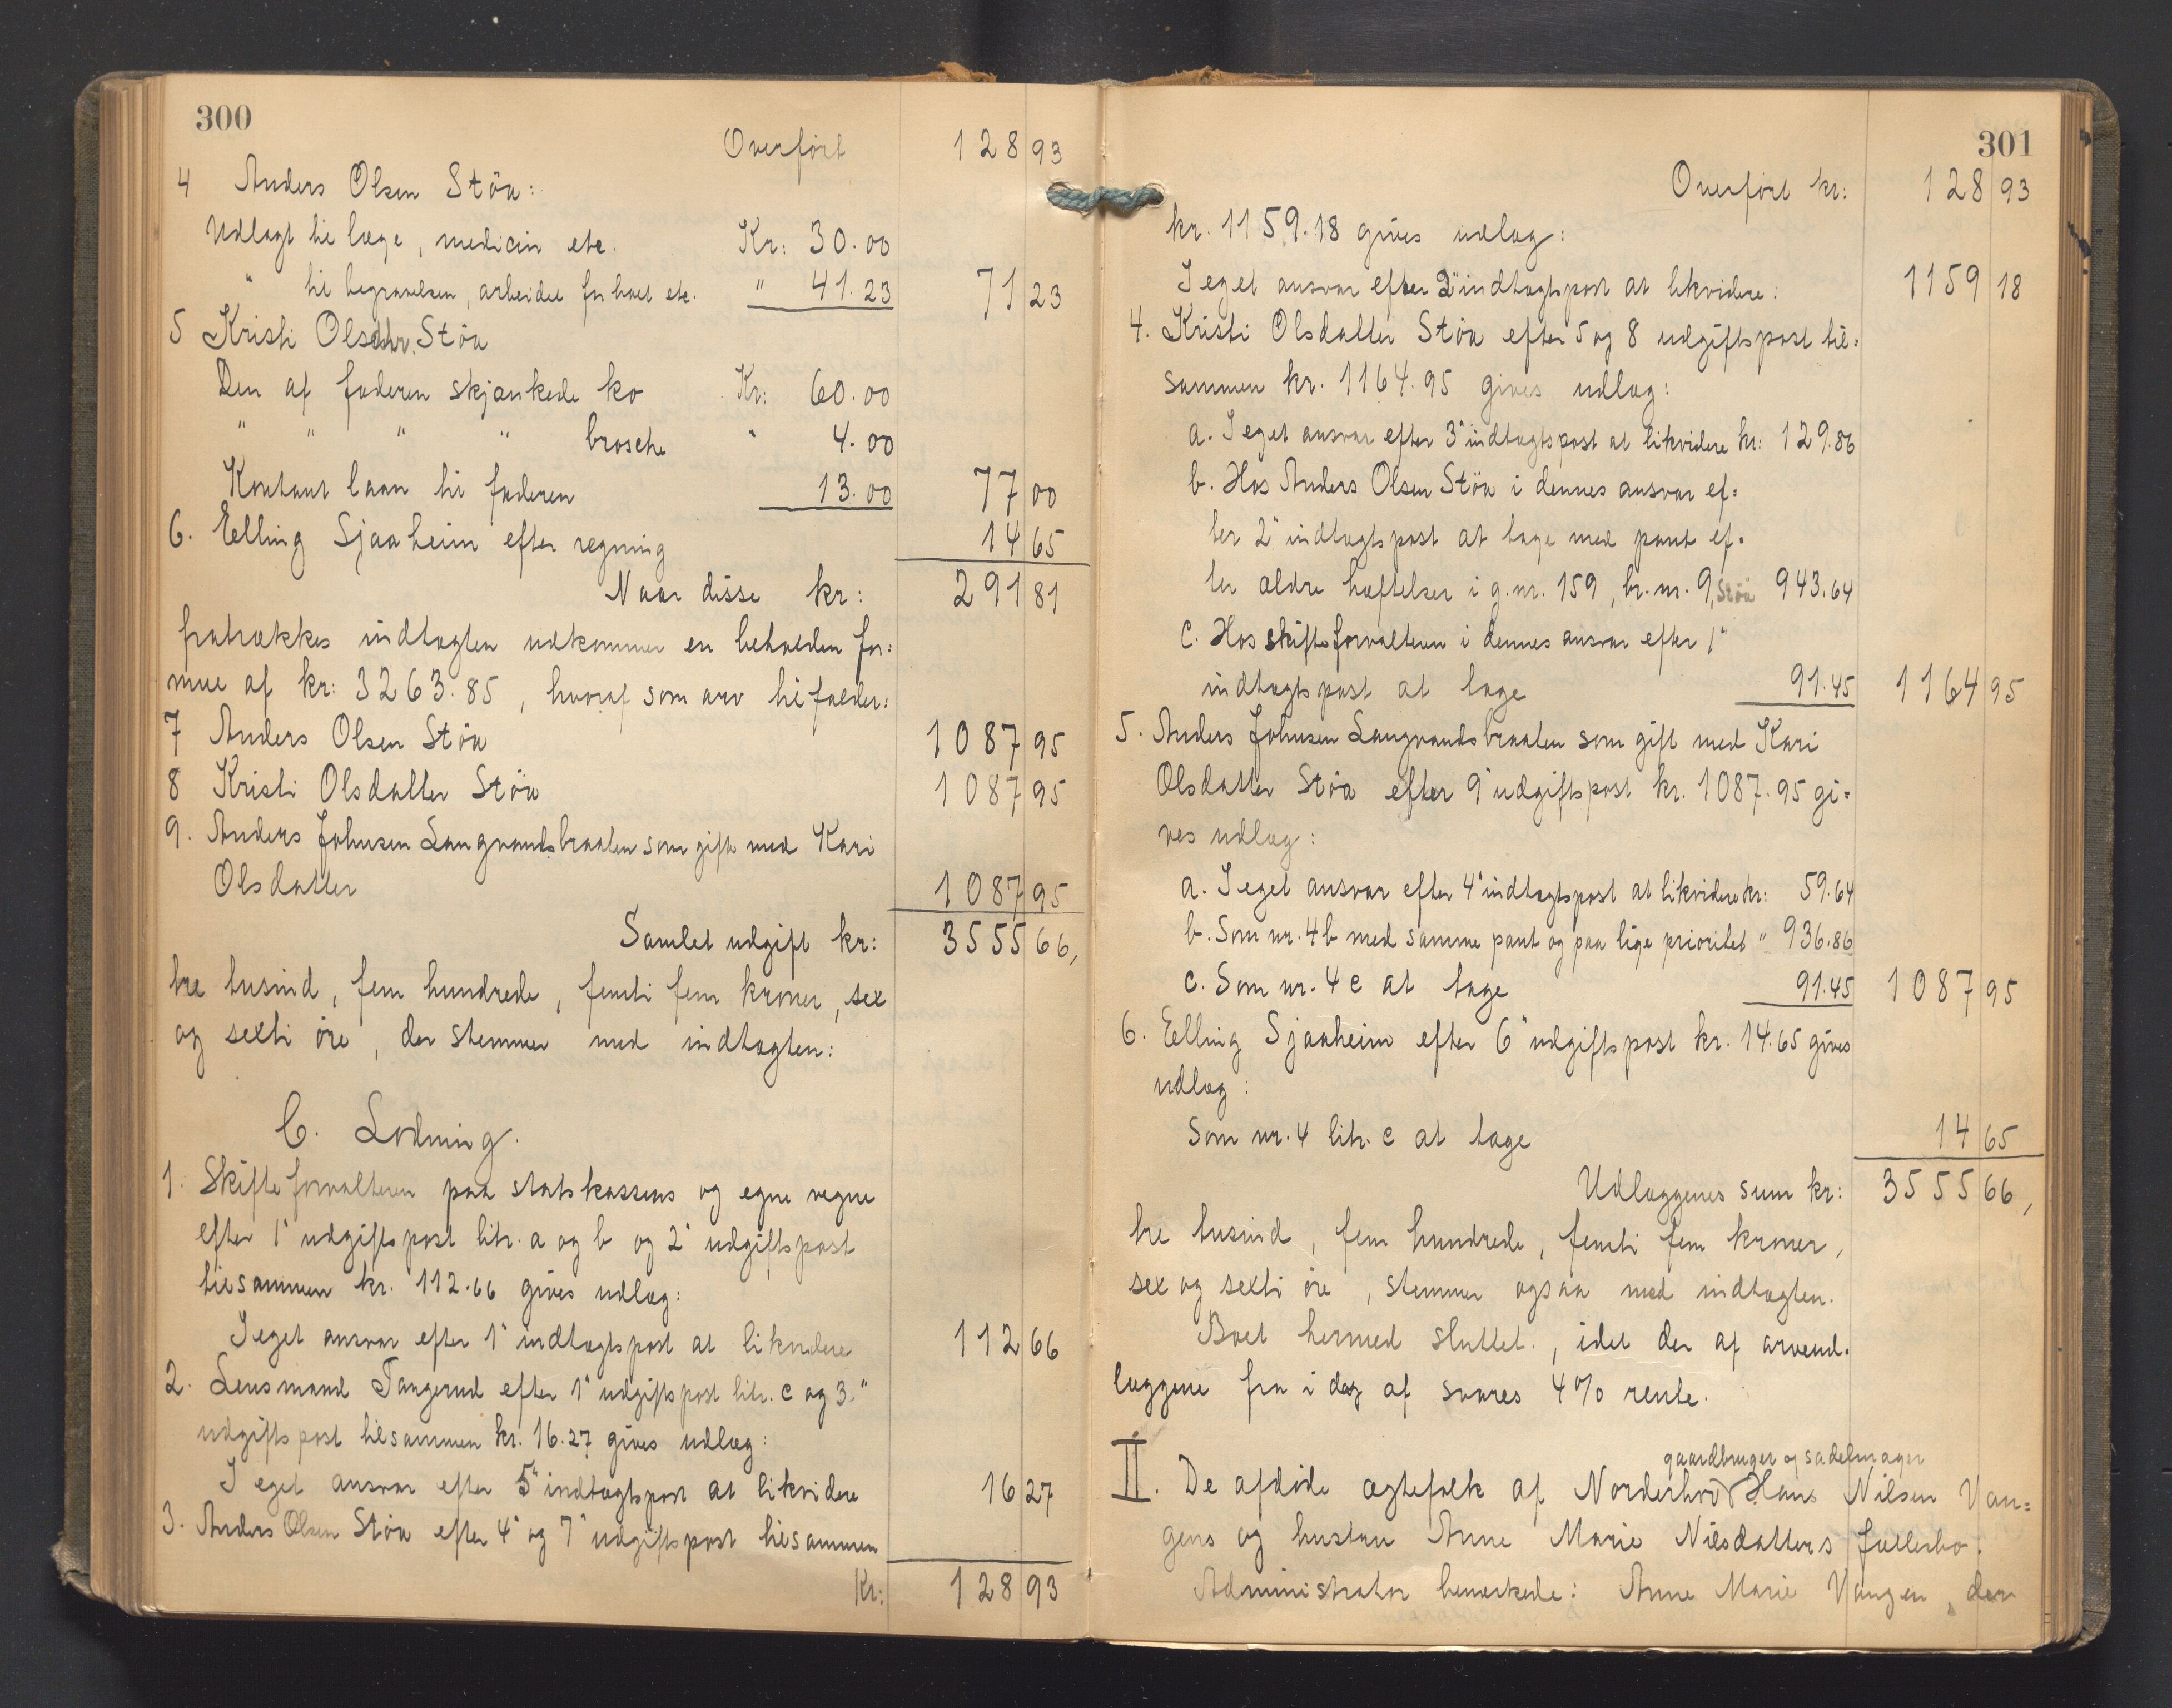 300
Overført 128 93
4 Anders Olsen Stöa:
Udlagt til læge, medicin etc. Kr: 30.00
" til begravelsen, arbeidet for boet etc. " 41.23 71 23
5 Kristi Olsdtr. Stöa
Den af faderen skjænkede ko Kr: 60.00
" " " " brosche " 4.00
Kontant laan til faderen 13.00 77 00
6. Elling Sjaaheim efter regning 14 65
Naar disse kr: 291 81
fratrækkes indtægten udkommer en beholden for=
mue af kr: 3263.85, hvoraf som arv tilfalder:
7 Anders Olsen Stöa 1087 95
8 Kristi Olsdatter Stöa 1087 95
9. Anders Johnsen Langvandsbraaten som gift med Kari
Olsdatter 1087 95
Samlet udgift kr: 3555 66,
tre tusind, fem hundrede, femti fem kroner, sex
og sexti øre, der stemmer med indtægten:
C. Lodning.
1. Skifteforvalteren paa statskassens og egne vegne
efter 1" udgiftspost litr. a og b og 2" udgiftspost
tilsammen kr. 112.66 gives udlæg:
I eget ansvar efter 1" indtægtspost at likvidere 112 66
2. Lensmand Tangerud efter 1" udgiftspost litr. c og 3."
udgiftspost tilsammen kr. 16.27 gives udlæg:
I eget ansvar efter 5" indtægtspost at likvidere 16 27
3. Anders Olsen Stöa efter 4" og 7" udgiftspost tilsammen
Kr: 128 93
301
Overført kr: 128 93
kr. 1159.18 gives udlæg:
I eget ansvar efter 2" indtægtspost at likvidere: 1159 18
4. Kristi Olsdatter Stöa efter 5 og 8 udgiftspost til=
sammen kr. 1164.95 gives udlæg:
a. I eget ansvar efter 3" indtægtspost at likvidere kr: 129.86
b. Hos Anders Olsen Stöa i dennes ansvar ef=
ter 2" indtægtspost at tage med pant ef=
ter ældre hæftelser i g.nr. 159, br.nr. 9, Stöa 943.64
c. Hos skifteforvalteren i dennes ansvar efter 1"
indtægtspost at tage 91.45 1164 95
5. Anders Johnsen Langvandsbraaten som gift med Kari
Olsdatter Stöa efter 9" udgiftspost kr. 1087.95 gi=
ves udlæg:
a. I eget ansvar efter 4" indtægtspost at likvidere kr: 59.64
b. Som nr. 4 b med samme pant og paa lige prioritet " 936.86
c. Som nr. 4 c at tage 91.45 1087 95
6. Elling Sjaaheim efter 6" udgiftspost kr. 14.65 gives
udlæg:
Som nr. 4 litr. c at tage 14 65
Udlæggenes sum kr: 3555 66,
tre tusind, fem hundrede, femti fem kroner,
sex og sexti øre, stemmer ogsaa med indtægten.
Boet hermed sluttet., idet der af arveud=
læggene fra i dag af svares 4% rente.
gaardbruger og sadelmager
II. De afdøde ægtefolk af Norderhov Hans Nilsen Van=
gens og hustru Anne Marie Nilsdatters fællesbo.
Administrator bemærkede: Anne Marie Vangen, der